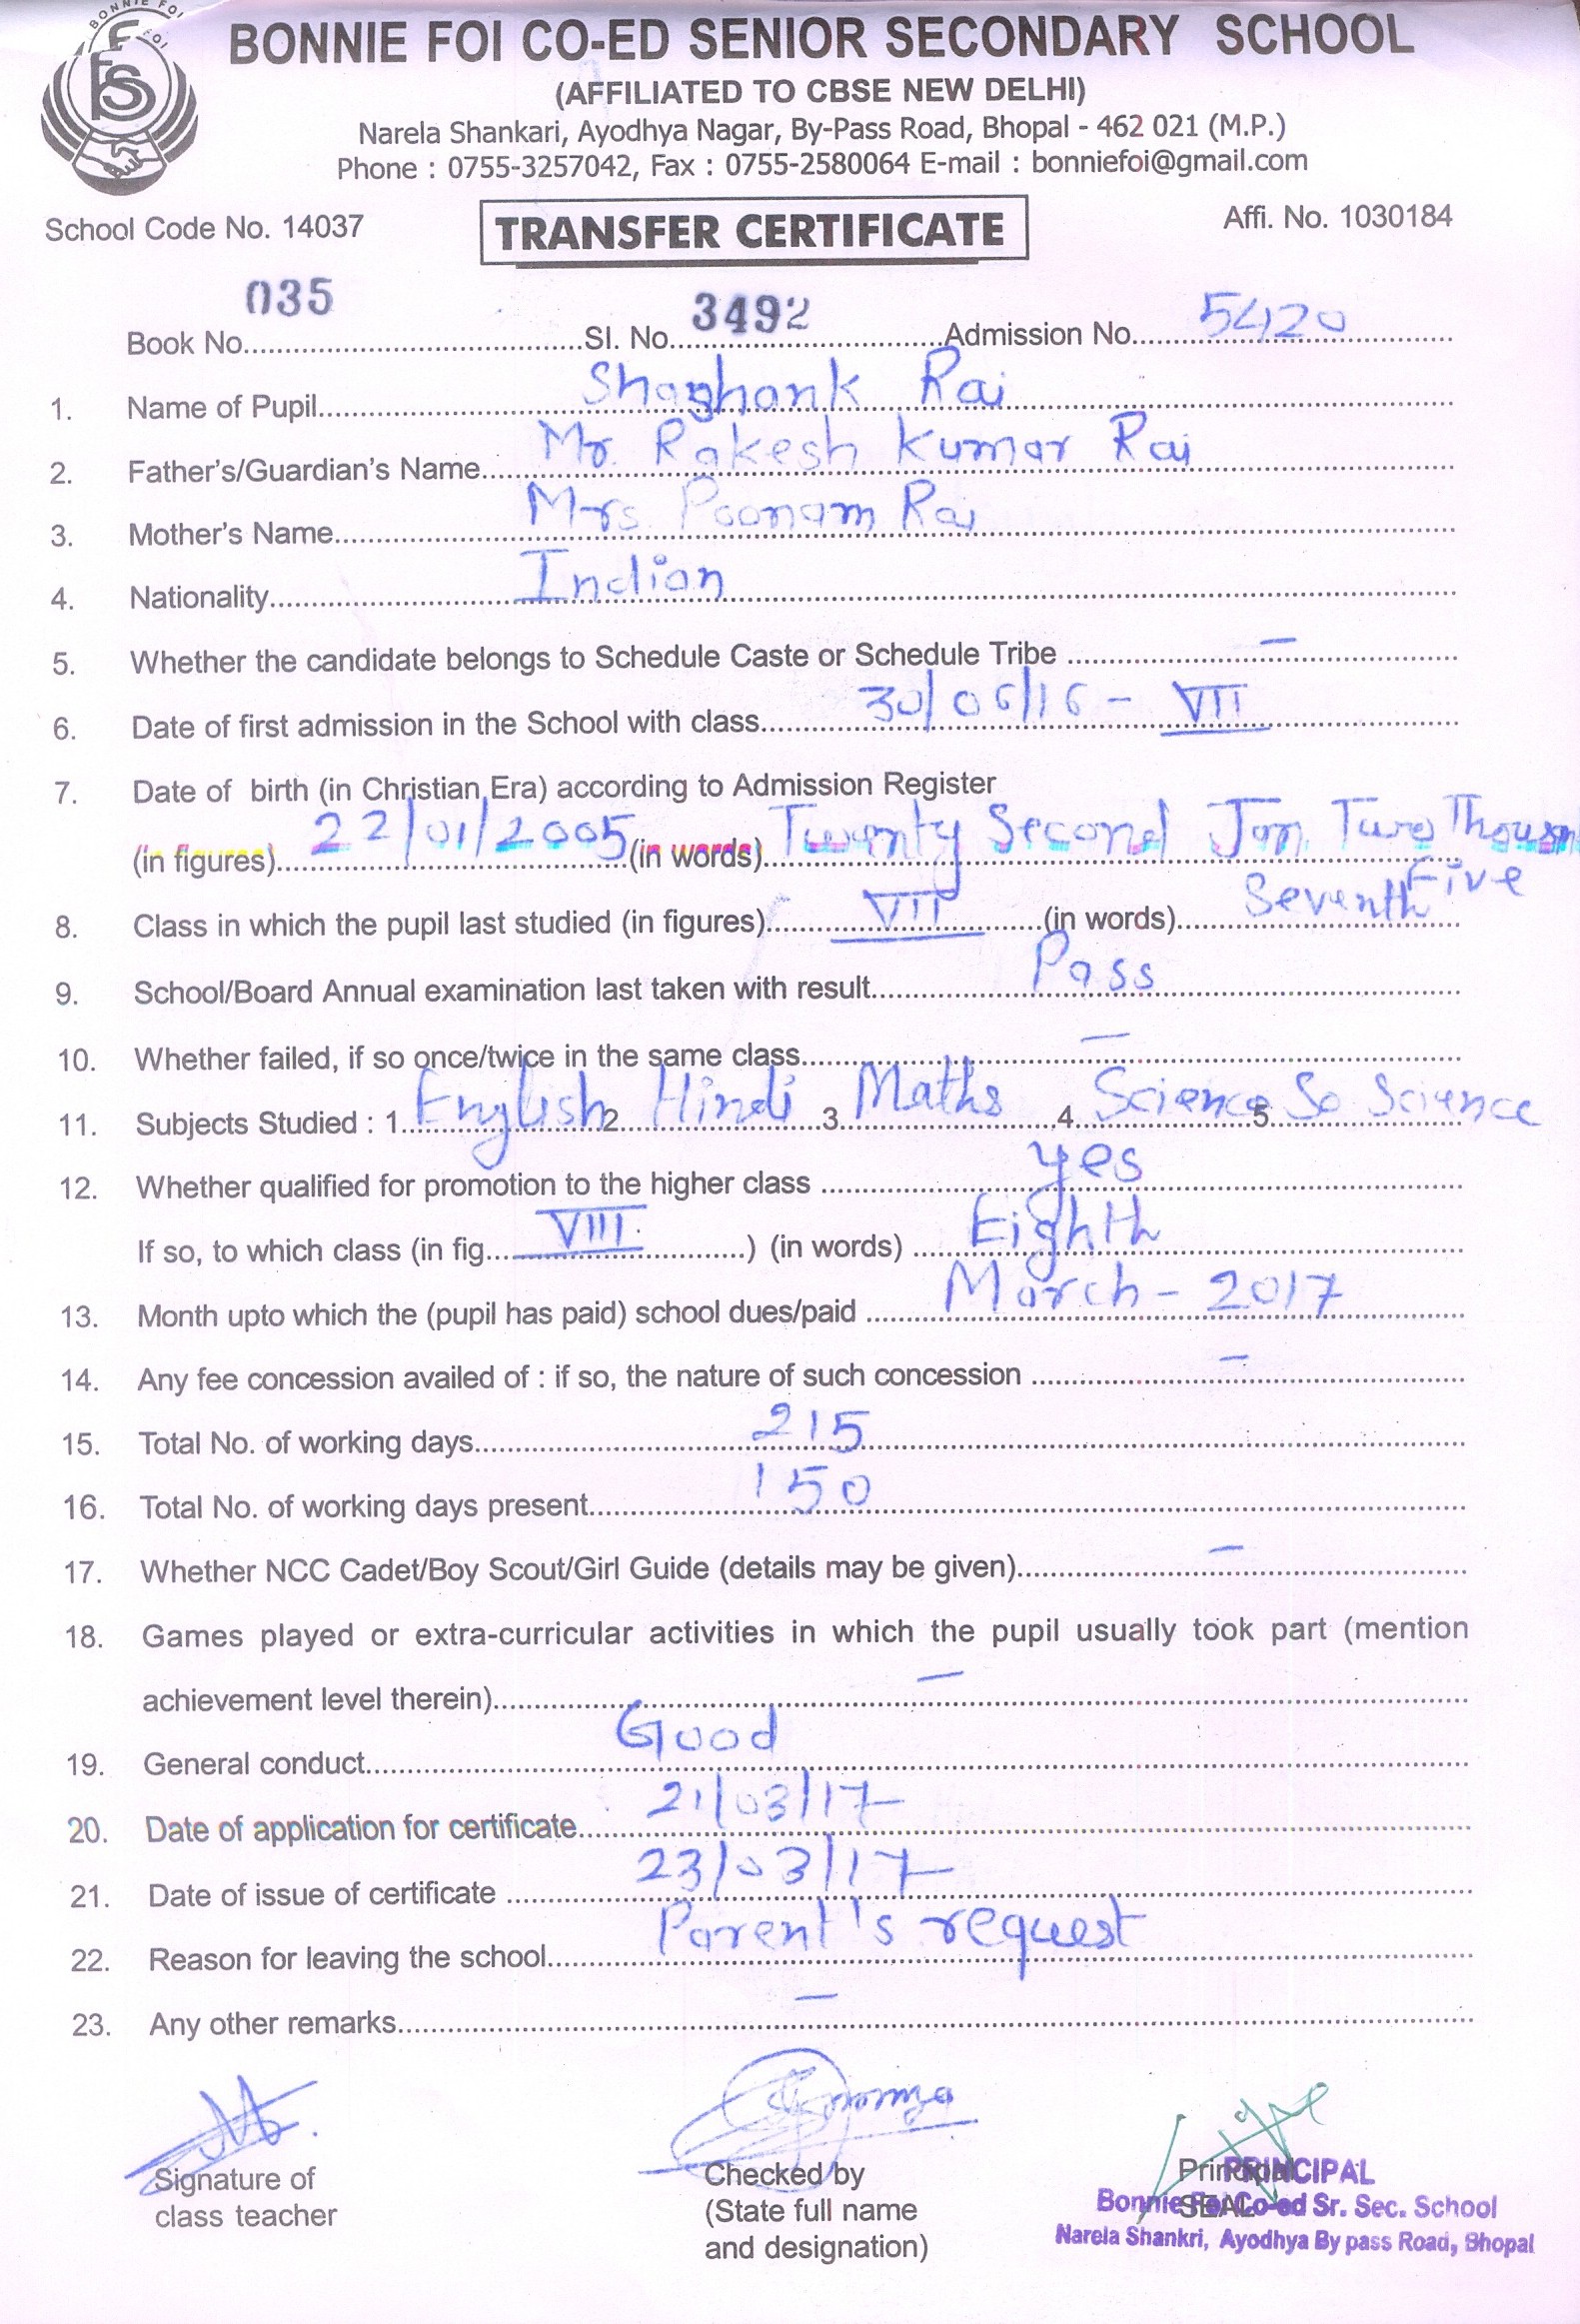 BONNIE FOI
FOI
FS
BONNIE FOI CO-ED SENIOR SECONDARY SCHOOL
(AFFILIATED TO CBSE NEW DELHI)
Narela Shankari, Ayodhya Nagar, By-Pass Road, Bhopal - 462 021 (M.P.)
Phone : 0755-3257042, Fax : 0755-2580064 E-mail : bonniefoi@gmail.com
School Code No. 14037 TRANSFER CERTIFICATE Affi. No. 1030184
Book No. 035 Sl. No. 3492 Admission No. 5420
1. Name of Pupil Shashank Rai
2. Father's/Guardian's Name Mr. Rakesh Kumar Rai
3. Mother's Name Mrs Poonam Rai
4. Nationality Indian
5. Whether the candidate belongs to Schedule Caste or Schedule Tribe —
6. Date of first admission in the School with class 30/06/16 - VII
7. Date of birth (in Christian Era) according to Admission Register
(in figures) 22/01/2005 (in words) Twenty Second Jan Two Thousan
Five
8. Class in which the pupil last studied (in figures) VII (in words) Seventh
9. School/Board Annual examination last taken with result Pass
10. Whether failed, if so once/twice in the same class —
11. Subjects Studied : 1 English 2 Hindi 3 Maths 4 Science 5 So Science
12. Whether qualified for promotion to the higher class yes
If so, to which class (in fig. VIII ) (in words) Eighth
13. Month upto which the (pupil has paid) school dues/paid March - 2017
14. Any fee concession availed of : if so, the nature of such concession —
15. Total No. of working days 215
16. Total No. of working days present 150
17. Whether NCC Cadet/Boy Scout/Girl Guide (details may be given) —
18. Games played or extra-curricular activities in which the pupil usually took part (mention
achievement level therein) —
19. General conduct Good
20. Date of application for certificate 21/03/17
21. Date of issue of certificate 23/03/17
22. Reason for leaving the school Parent's request
23. Any other remarks —
Signature of Checked by Principal PRINCIPAL
class teacher (State full name SEAL Bonnie Foi Co-ed Sr. Sec. School
and designation) Narela Shankri, Ayodhya By pass Road, Bhopal